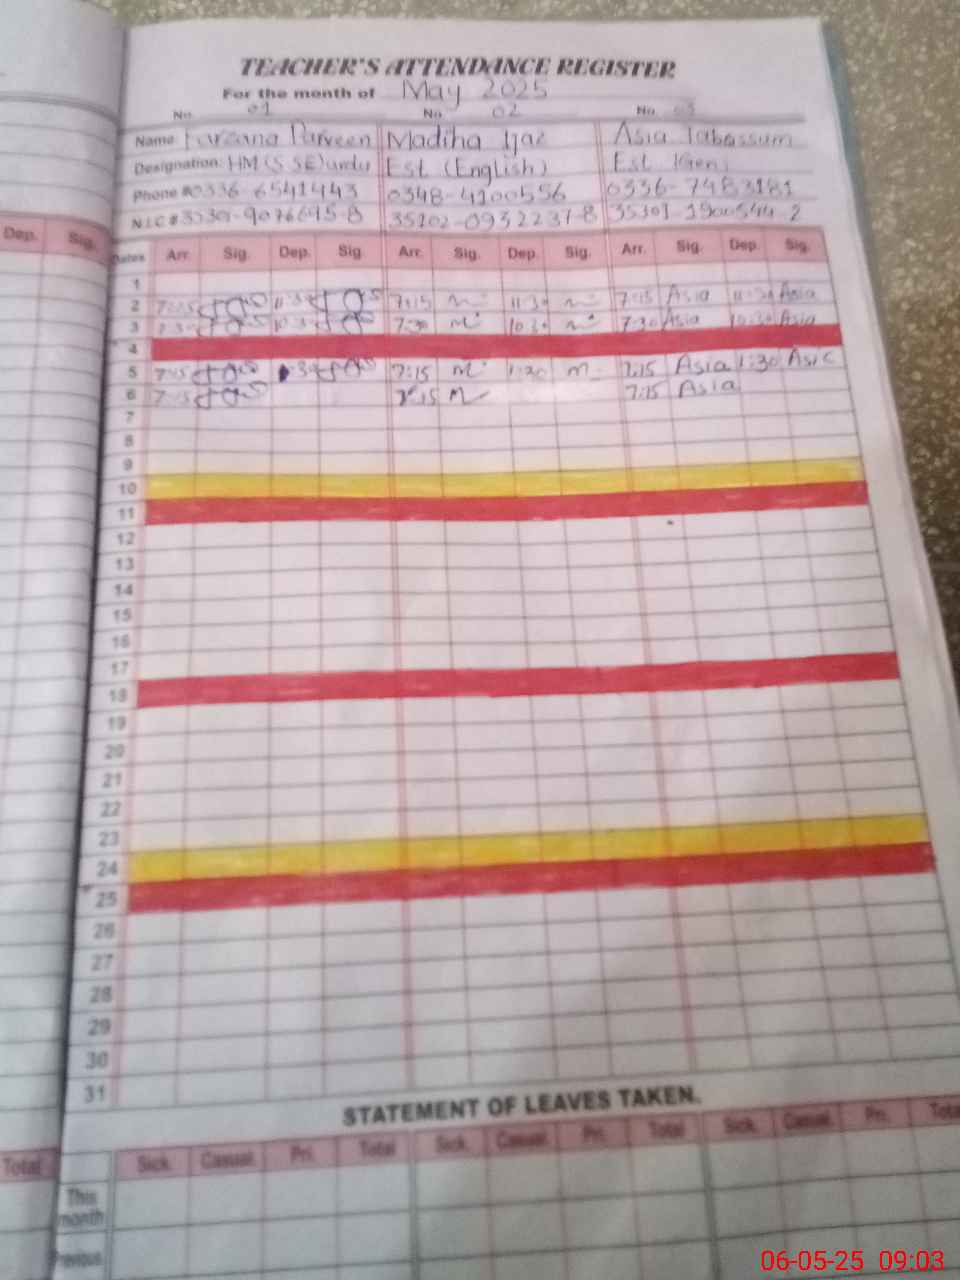 TEACHER'S ATTENDANCE REGISTER
For the month of May 2025
No. 01 No. 02 No. 03
Name: Farzana Parveen Madiha Ijaz Asia Tabassum
Designation: HM (SSE) urdu Est (English) Est
Phone # 0336-6541443 0348-4100556 0336-7483181
N.I.C #
Dep. Sig. Dates Arr. Sig. Dep. Sig Arr. Sig. Dep. Sig. Arr. Sig. Dep. Sig.
1
2 7:15 11:30 7:15 11:30 7:15 Asia 11:30 Asia
3 7:30 10:30 7:30 10:30 7:30 Asia 10:30 Asia
4
5 7:15 1:30 7:15 1:30 7:15 Asia 1:30 Asia
6 7:15 7:15 7:15 Asia
7
8
9
10
11
12
13
14
15
16
17
18
19
20
21
22
23
24
25
26
27
28
29
30
31
STATEMENT OF LEAVES TAKEN.
Total Sick. Casual. Pri. Total Sick. Casual. Pri. Total Sick. Casual. Pri. Tota
This
month
Previous
06-05-25 09:03